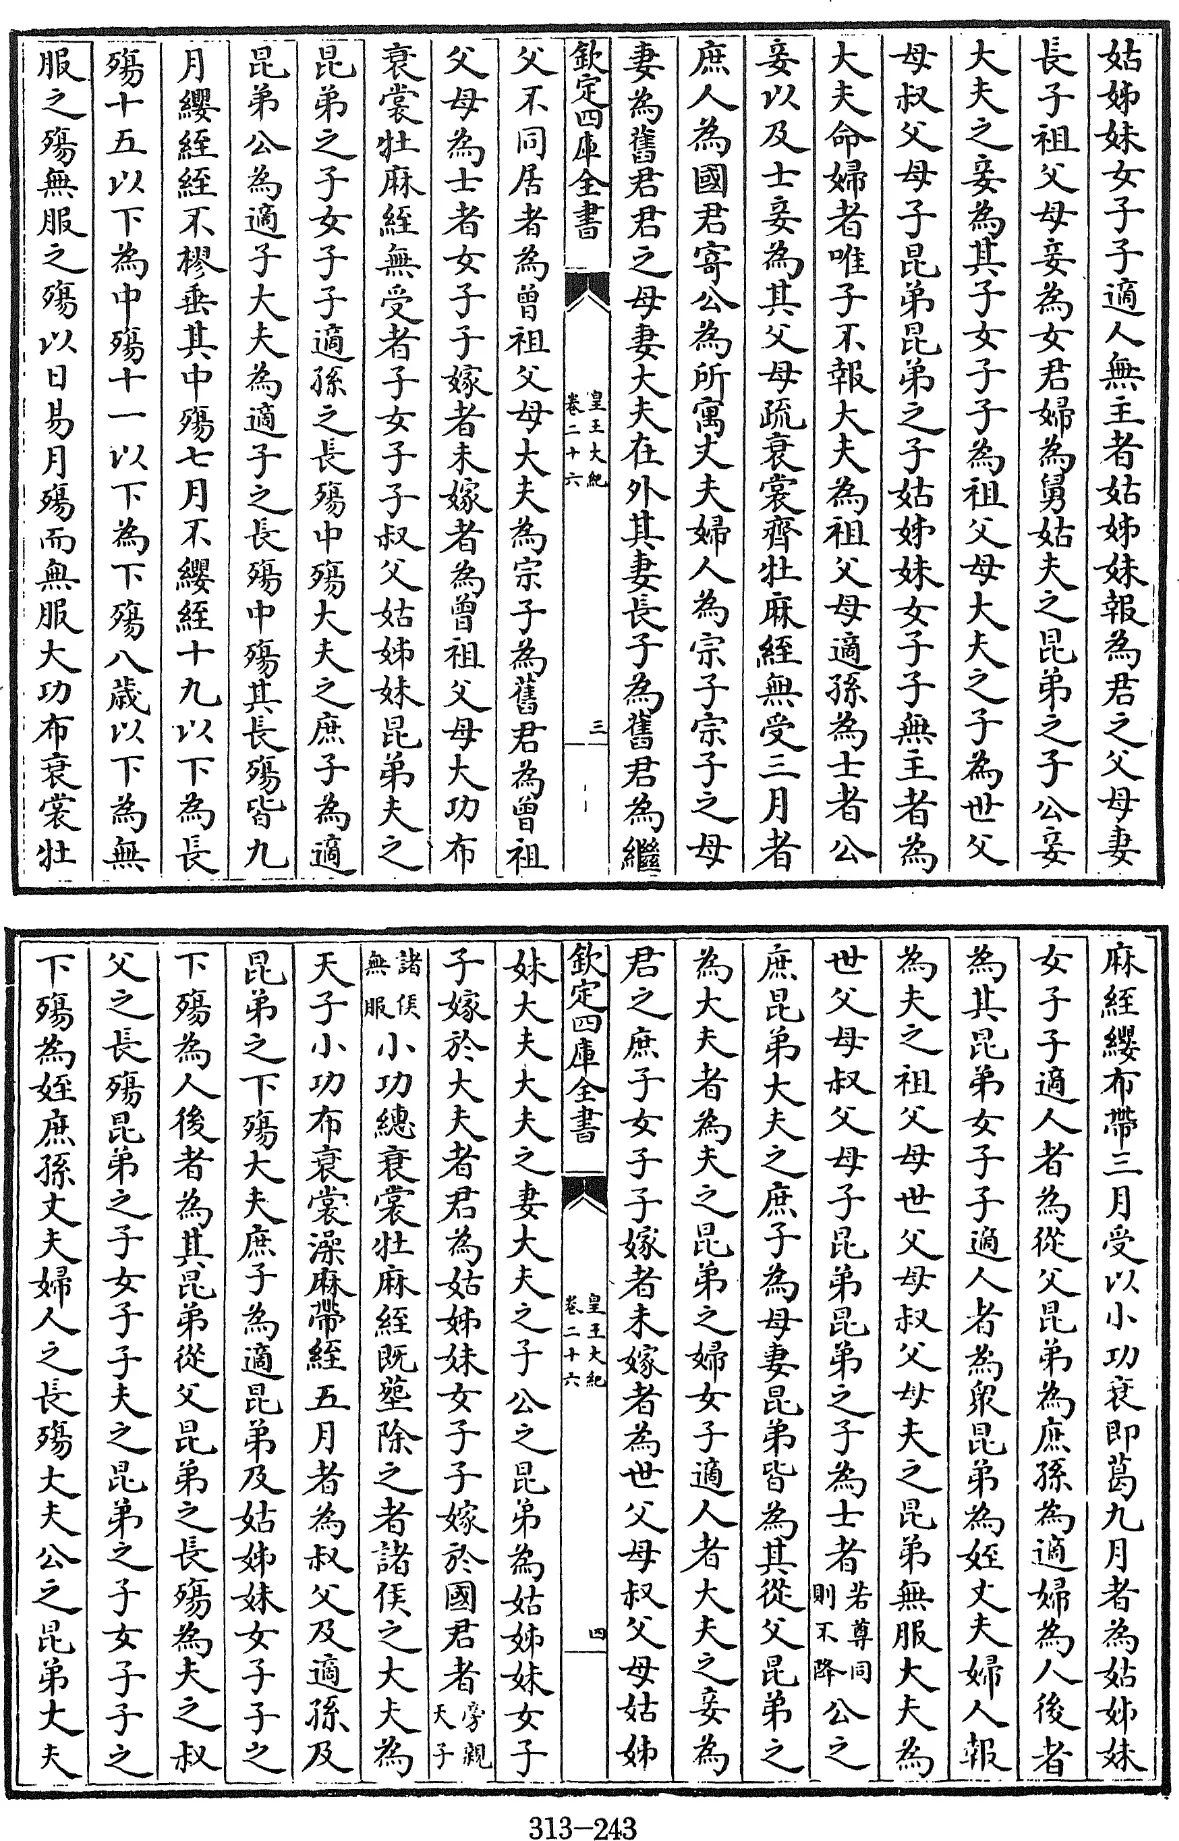 姑姊妹女子子適人無主者姑姊妹報為君之父母妻
長子祖父母妾為女君婦為舅姑夫之昆弟之子公妾
大夫之妾為其子女子子為祖父母大夫之子為世父
母叔父母子昆弟昆弟之子姑姊妹女子子無主者為
大夫命婦者唯子不報大夫為祖父母適孫為士者公
妾以及士妾為其父母疏衰裳齊牡麻絰無受三月者
庶人為國君寄公為所寓丈夫婦人為宗子宗子之母
妻為舊君君之母妻大夫在外其妻長子為舊君為繼
欽定四庫全書
皇王大紀
卷二十六
三
父不同居者為曾祖父母大夫為宗子為舊君為曾祖
父母為士者女子子嫁者未嫁者為曾祖父母大功布
衰裳牡麻絰無受者子女子子叔父姑姊妹昆弟夫之
昆弟之子女子子適孫之長殤中殤大夫之庶子為適
昆弟公為適子大夫為適子之長殤中殤其長殤皆九
月纓絰絰不樛垂其中殤七月不纓絰十九以下為長
殤十五以下為中殤十一以下為下殤八歲以下為無
服之殤無服之殤以日易月殤而無服大功布衰裳牡
麻絰纓布帶三月受以小功衰即葛九月者為姑姊妹
女子子適人者為從父昆弟為庶孫為適婦為人後者
為其昆弟女子子適人者為衆昆弟為姪丈夫婦人報
為夫之祖父母世父母叔父母夫之昆弟無服大夫為
世父母叔父母子昆弟昆弟之子為士者若尊同則不降公之
庶昆弟大夫之庶子為母妻昆弟皆為其從父昆弟之
為大夫者為夫之昆弟之婦女子適人者大夫之妾為
君之庶子女子子嫁者未嫁者為世父母叔父母姑姊
欽定四庫全書
皇王大紀
卷二十六
四
妹大夫大夫之妻大夫之子公之昆弟為姑姊妹女子
子嫁於大夫者君為姑姊妹女子子嫁於國君者旁親天子
諸侯無服小功繐衰裳牡麻絰既葬除之者諸侯之大夫為
天子小功布衰裳澡麻帶絰五月者為叔父及適孫及
昆弟之下殤大夫庶子為適昆弟及姑姊妹女子子之
下殤為人後者為其昆弟從父昆弟之長殤為夫之叔
父之長殤昆弟之子女子子夫之昆弟之子女子子之
下殤為姪庶孫丈夫婦人之長殤大夫公之昆弟大夫
313-243